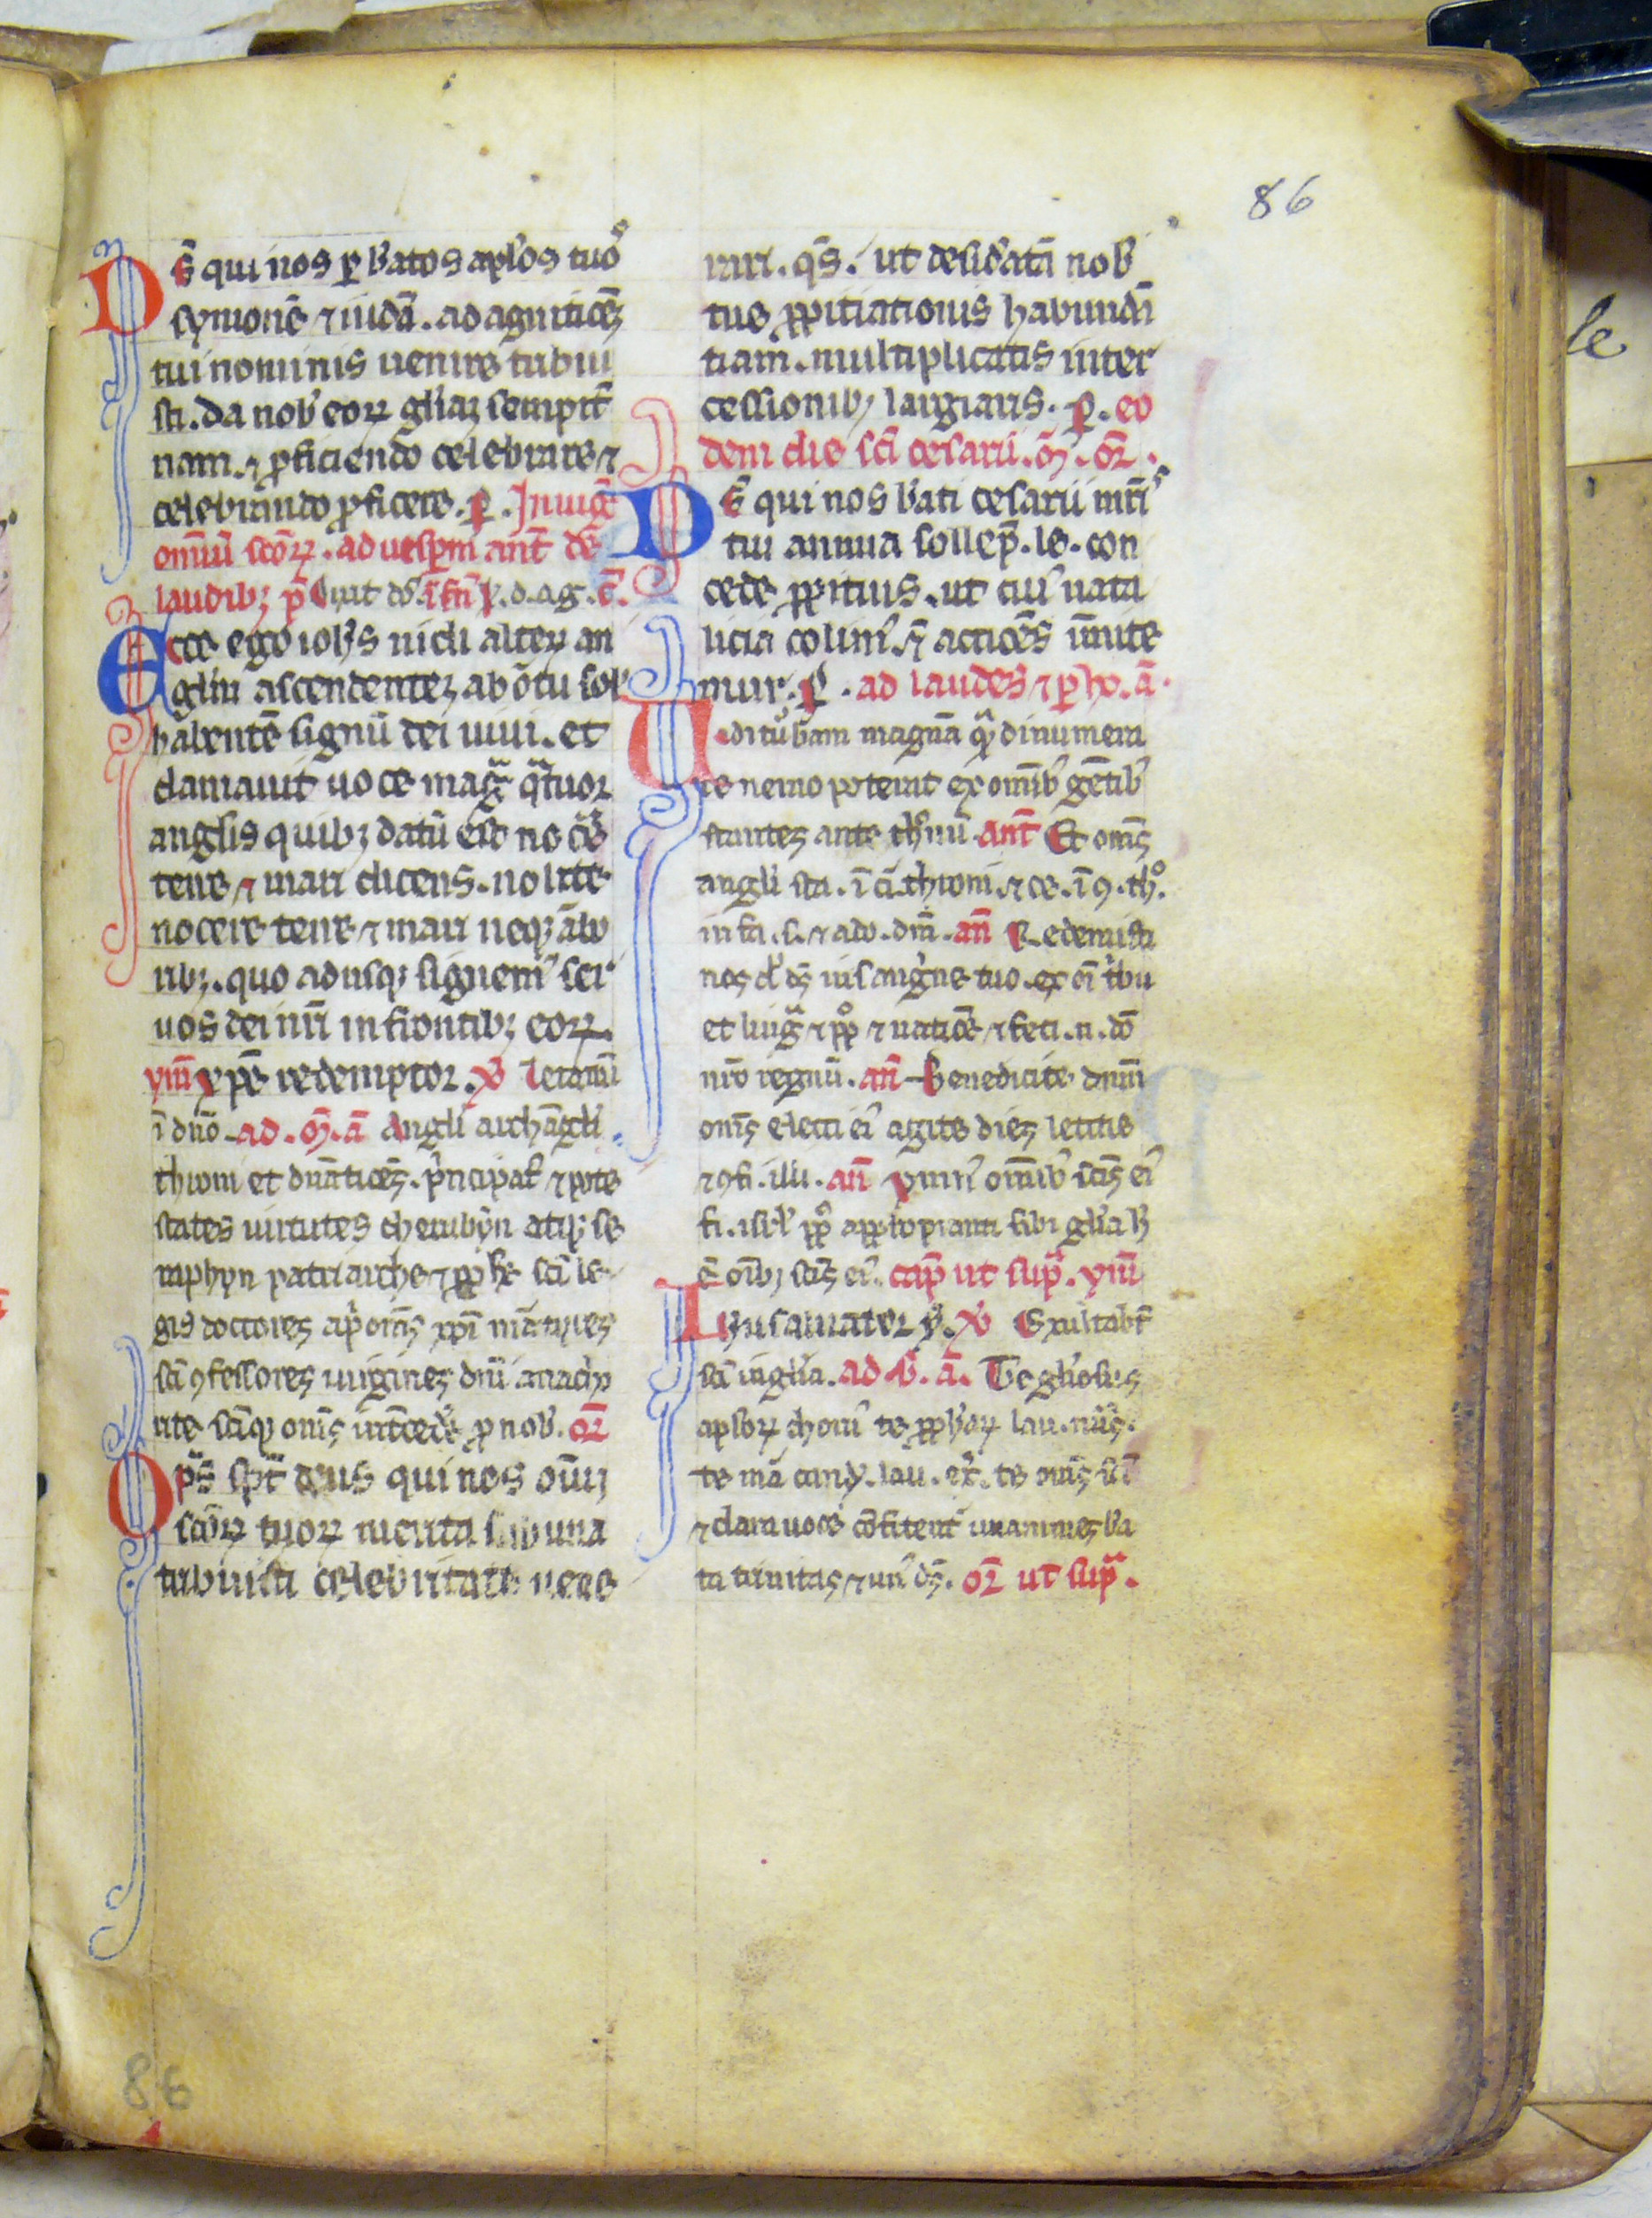 86
Dē qui nos ꝑ b̄atos apl̓os tuo᷒
symonē ⁊ iudā. ad agnitiōeꝫ
tui nominis uenire tribui
sti. da nob̓ eoꝝ gl̄iaꝫ sempit̄
nam. ⁊ ꝓficiendo celebrare ⁊
celebrando ꝓficere. ꝑ. In uigl̓
omniū sc̄oꝝ. ad uesp̄m ant̄ de
laudibꝫ
Ecce ego ioh̄s uidi alteꝝ an
gl̄m ascendenteꝫ ab ortu sol̓
hab̄entē signū dei uiui. et
clamauit uoce magᷓ qᷓtuor
angl̄is quibꝫ datū est nocē
terre ⁊ mari dicens. nolite
nocere terre ⁊ mari neqꝫ arbo
ribꝫ. quo adusqꝫ signem᷒ ser
uos dei nr̄i in frontibꝫ eoꝝ.
ymn̄ xp̄e redemptor. ꝟ Letamī
ī dn̄o. ad. ā Angl̄i archāgl̄i
throni et dn̄atiōeꝫ. p̓ncipat᷒ ⁊ pote
states uirtutes cherubyn atqꝫ se
raphyn patriarche ⁊ ꝓph̄e sc̄i le
gis doctores apl̓i om̄s xp̄i mārtyres
sc̄i ꝯfessores uirgines dn̄i anacho
rite sc̄iqꝫ om̄s int̄cedite ꝓ nob̓. or̄
Omps̄ sp̄t deus qui nos om̄iꝫ
sc̄oꝝ tuoꝝ merita sub una
tribuisti celebritate uene
rari. qs̄. ut desid̓atā nob̓
tue ꝓpitiationis habundā
tiam. multiplicatis inter
cessionibꝫ largiaris. ꝑ. eo
dem die sc̄i cesarii. or̄.
Dē qui nos b̄ati cesarii mr̄is
tui annua sollēp̄. le. con
cede ꝓpitius. ut cui᷒ nata
licia colim᷒. actiōes imite
mur. ꝑ. ad laudes ⁊ ꝑ ho. ā.
Uidi turbam magnā qᷓ dinumera
re nemo poterat ex omīb̓ gētib̓
stantes ante thronū. ant̄ Et om̄s
angl̄i sta. ī ci. throni. ⁊ ce. ī ꝯ. th̓.
in fa. s. ⁊ ado. dm̄. an̄ Redemisti
nos dn̄e ds̄ in sangᷓne tuo. ex oī t̓bu
et linḡ ⁊ ꝓp̓ ⁊ natiōe ⁊ feci. n. dō
nr̄o regnū. an̄ Benedicite dn̄m
om̄s electi ei᷒ agite dies letitie
⁊ ꝯfi. illi. an̄ ymn᷒ omīb̓ sc̄is ei᷒
fi. isrl̓ ꝓp̓ appropianti sibi gl̄ia h̄
ē oīb̓ sc̄is ei᷒. cap̄ ut supᷓ. ymn̄
Ih̄u saluator. ꝟ Exultabt̄
sc̄i in gl̄ia. ad b̓. ā. Te gl̄iosus
apl̓oꝝ chor᷒ te ꝓph̄aꝝ lau. nūs.
te mā. cand. lau. ex̓. te om̄s sc̄i
⁊ clara uoce cōfitent᷒ unanimes b̄a
ta trinitas ⁊ un᷒ ds̄. or̄ ut supᷓ.
86
le